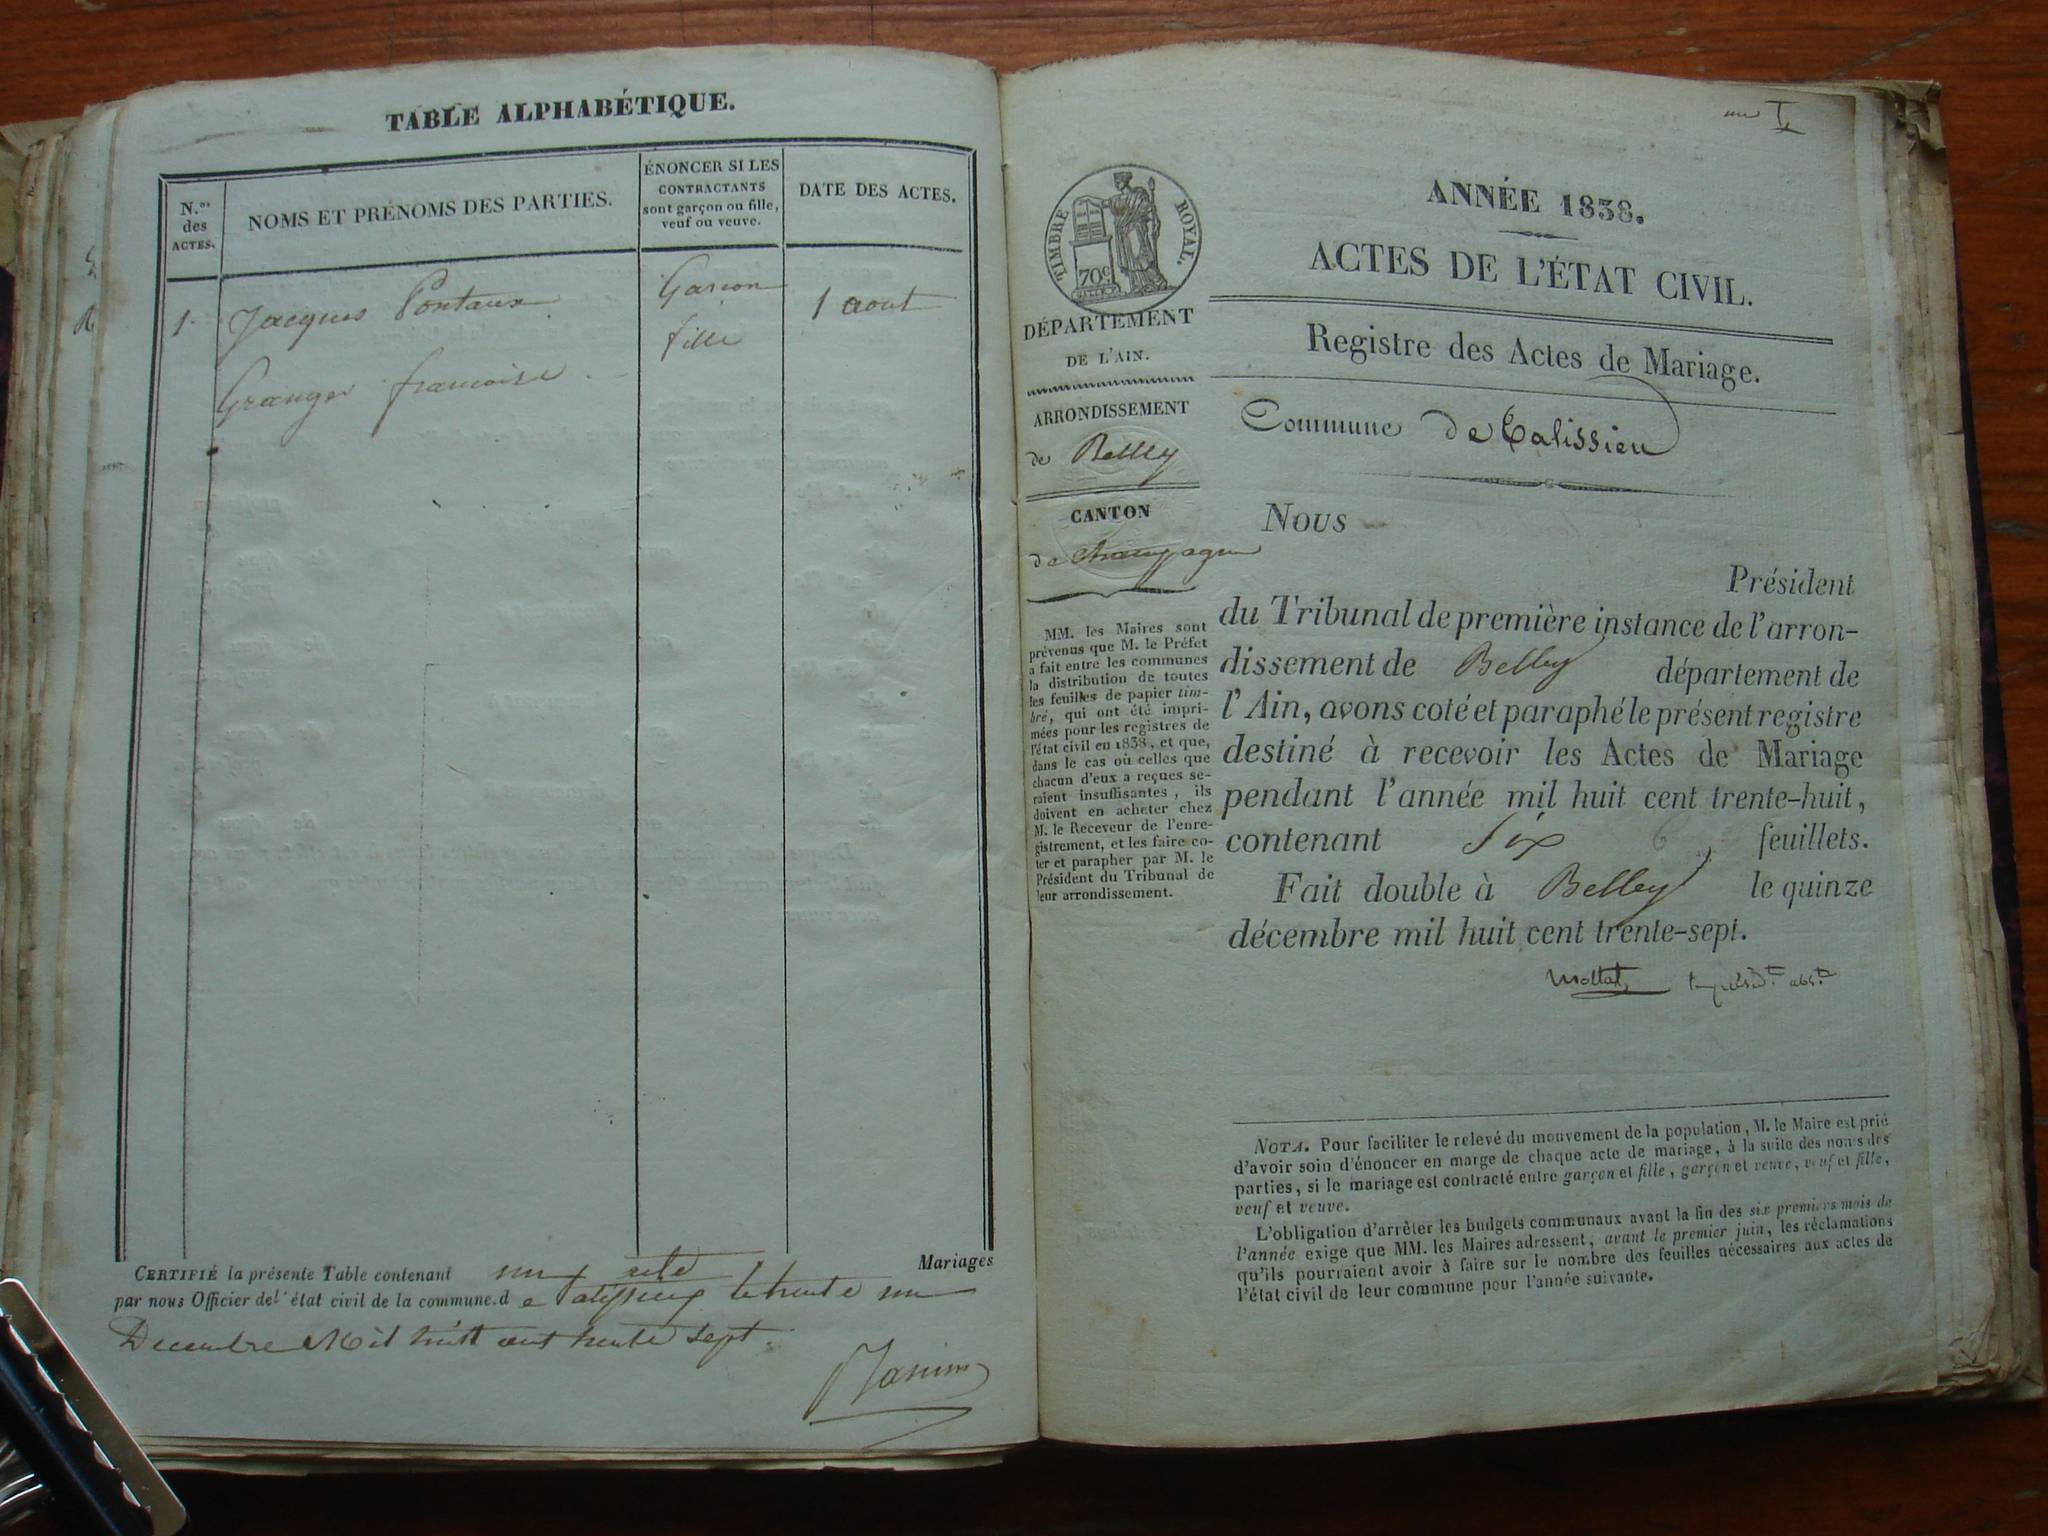 TABLE ALPHABÉTIQUE.
N.os
des
ACTES.
NOMS ET PRÉNOMS DES PARTIES.
ÉNONCER SI LES
CONTRACTANTS
sont garçon ou fille,
veuf ou veuve.
DATE DES ACTES.
1. Jacques Pontaux Garcon 1 aout
Granger francoise fille
CERTIFIÉ la présente Table contenant un acte Mariages
par nous Officier de l'état civil de la commune.d e le trente un
Decembre Mil huit cent trente sept
Janin
une
TIMBRE ROYAL.
70c
ANNÉE 1838.
ACTES DE L'ÉTAT CIVIL.
Registre des Actes de Mariage.
Commune de Talissieu
DÉPARTEMENT
DE L'AIN.
ARRONDISSEMENT
de Belley
CANTON
de Champagne
MM. les Maires sont
prévenus que M. le Préfet
a fait entre les communes
la distribution de toutes
les feuilles de papier tim-
bré, qui ont été impri-
mées pour les registres de
l'état civil en 1838, et que,
dans le cas où celles que
chacun d'eux a reçues se-
raient insuffisantes, ils
doivent en acheter chez
M. le Receveur de l'enre-
gistrement, et les faire co-
ter et parapher par M. le
Président du Tribunal de
leur arrondissement.
Nous
Président
du Tribunal de première instance de l'arron-
dissement de Belley département de
l'Ain, avons coté et paraphé le présent registre
destiné à recevoir les Actes de Mariage
pendant l'année mil huit cent trente-huit,
contenant Six 6 feuillets.
Fait double à Belley le quinze
décembre mil huit cent trente-sept.
Mollat
NOTA. Pour faciliter le relevé du mouvement de la population, M. le Maire est prié
d'avoir soin d'énoncer en marge de chaque acte de mariage, à la suite des noms des
parties, si le mariage est contracté entre garçon et fille, garçon et veuve, veuf et fille,
veuf et veuve.
L'obligation d'arrêter les budgets communaux avant la fin des six premiers mois de
l'année exige que MM. les Maires adressent, avant le premier juin, les réclamations
qu'ils pourraient avoir à faire sur le nombre des feuilles nécessaires aux actes de
l'état civil de leur commune pour l'année suivante.